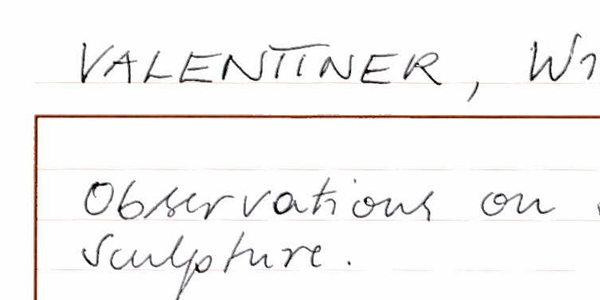 VALENTINER, Wi
Observations on
sculpture.